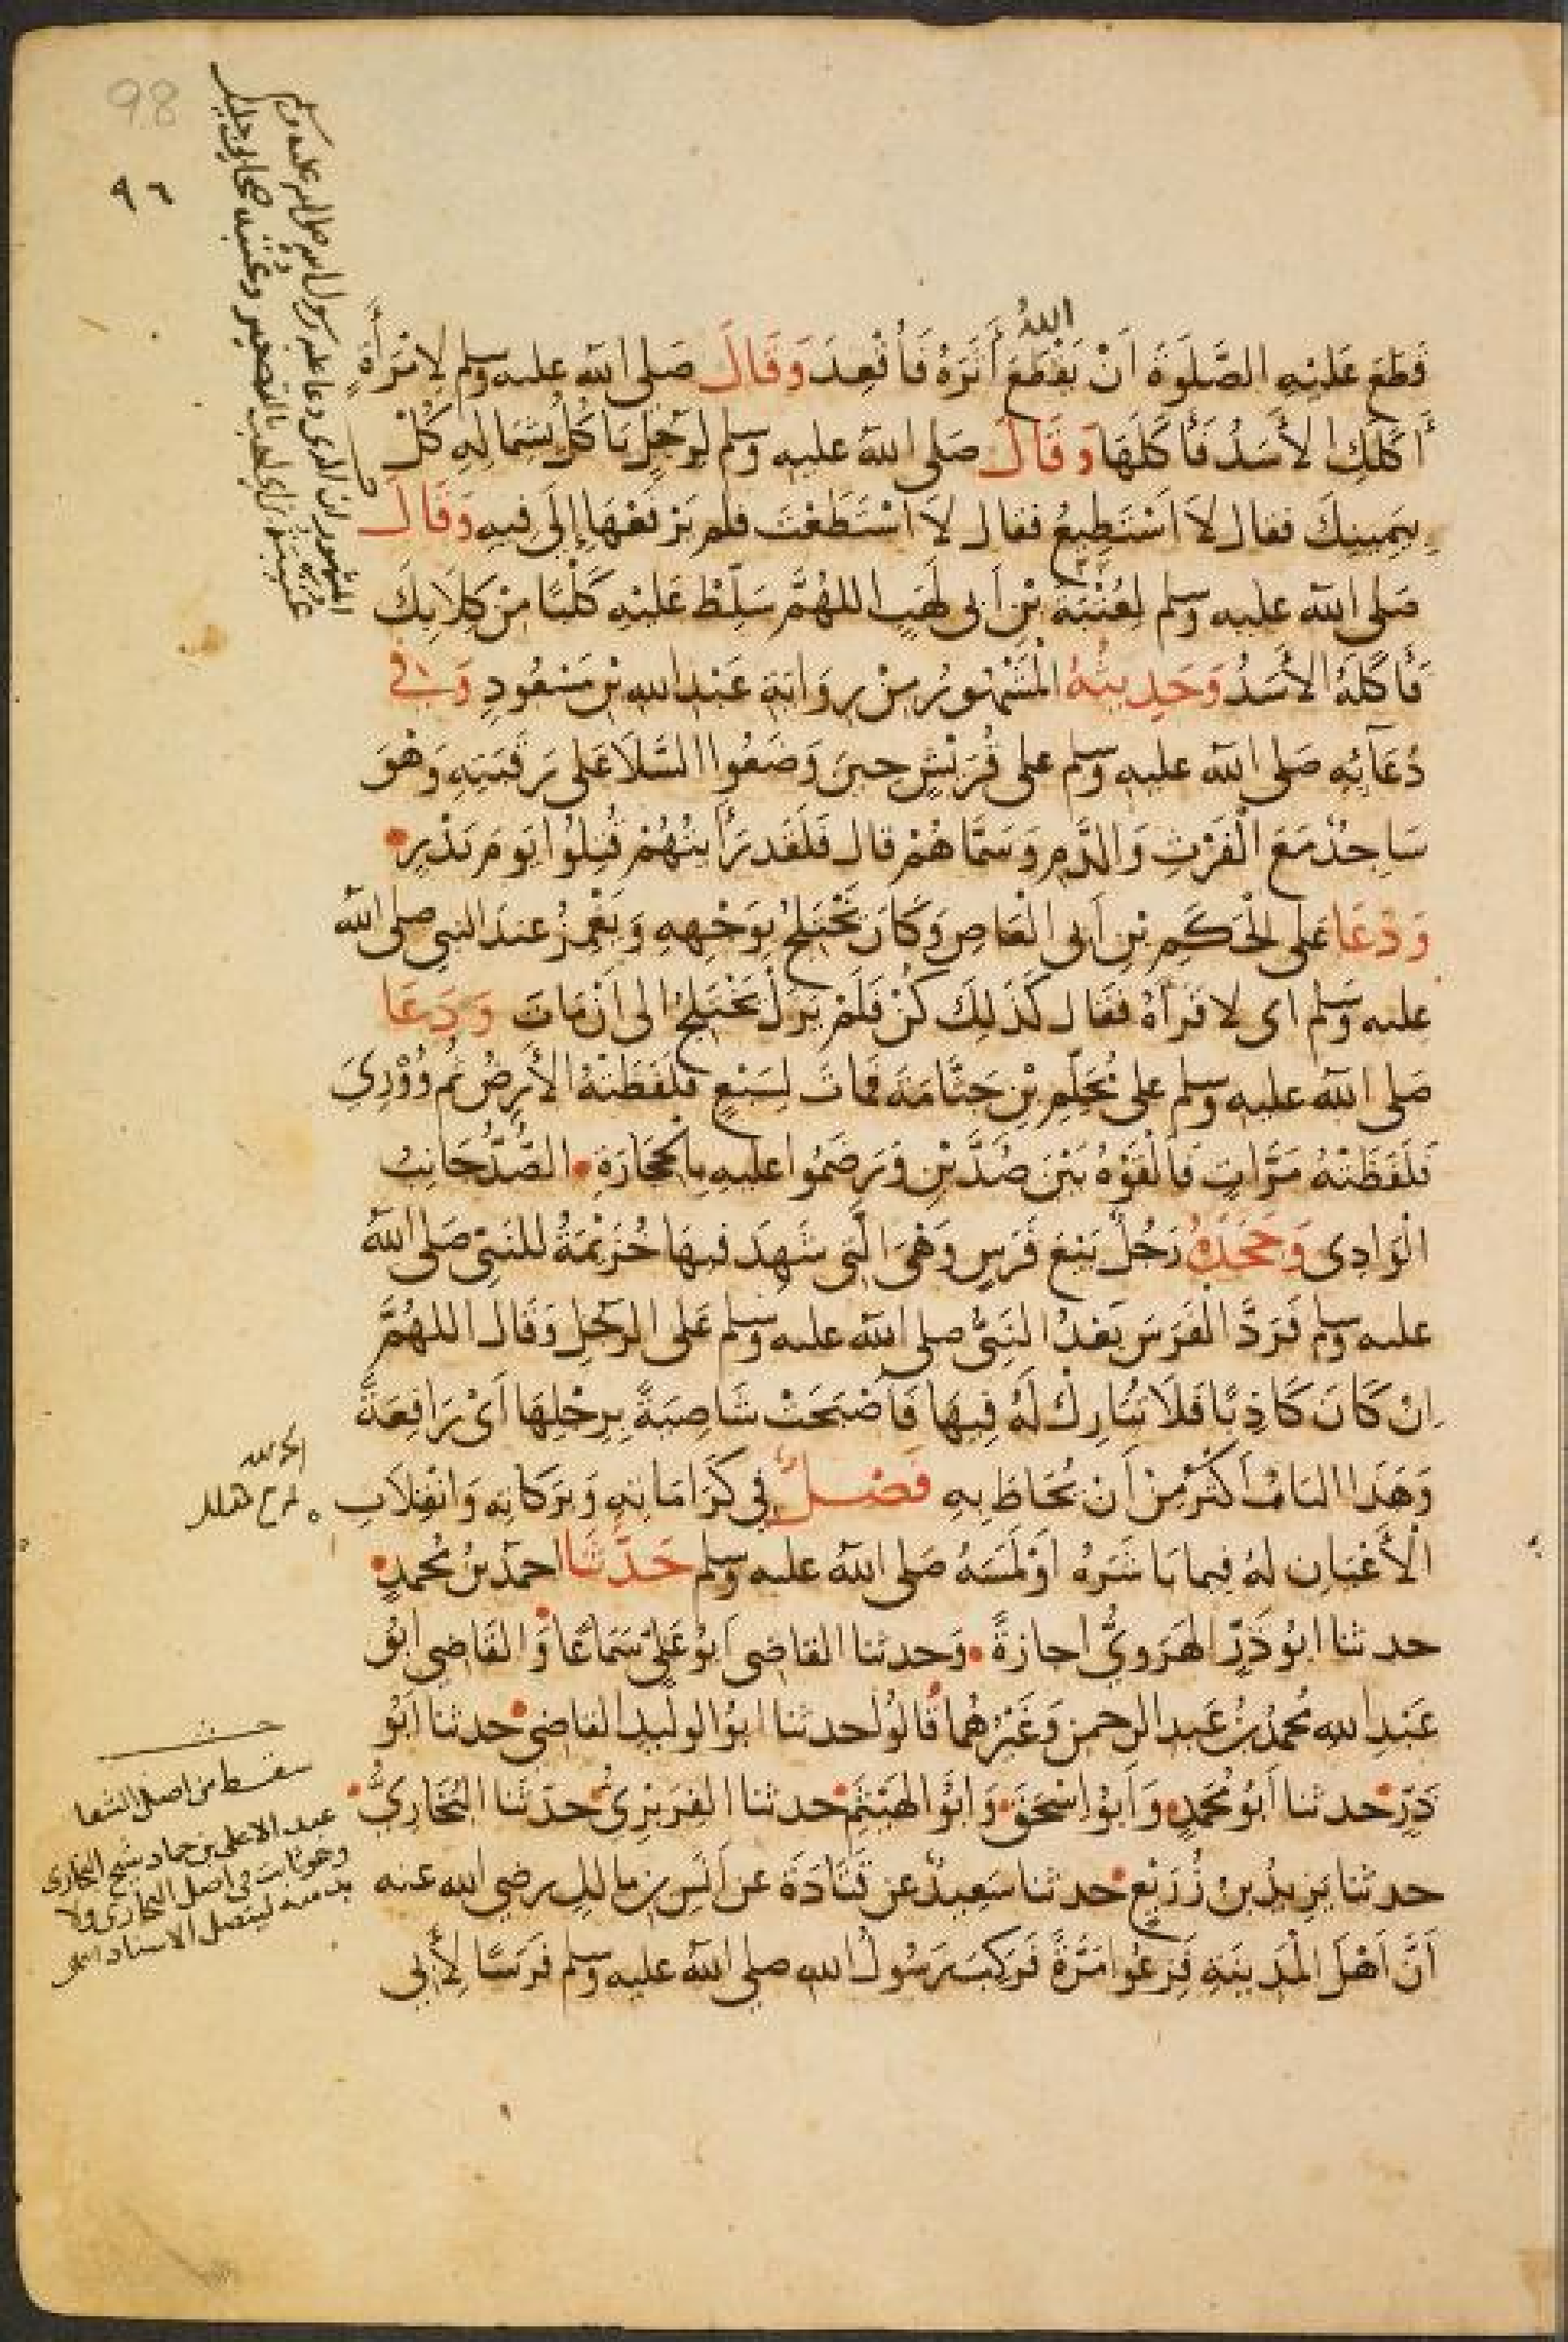 98
الله
قَطَعَ عَلَيْهِ الصَّلَوةَ اَنْ يَقْطَعَ أَثَرَهُ فَأُقْعِدَ وَقَالَ صَلى الله عليه وسلم لِامْرَأَةٍ
أَكَلَكِ الأَسَدُ فَأَكَلَهَا وَقَالَ صَلى الله عليه وسلم لِرَجُلٍ يَأكُلُ بِشِمَالِهِ كُلْ
بِيَمِينِكَ فقال لَا اَسْتَطِيعُ فقال لَا اسْتَطَعْتَ فلم يَرْفَعْهَا إِلَى فِيهِ وَقَالَ
صَلى الله عليه وسلم لِعُتْبَةَ بْنِ اَبى لَهَبٍ اللهُمَّ سَلِّطْ عَلَيْهِ كَلْبًا مِنْ كِلَابِكَ
فَأَكَلَهُ الأَسَدُ وَحَدِيثُهُ الْمَشْهُورُ مِنْ رِوَايَةِ عَبْدِ الله بْنِ مَسْعُودٍ وَفِي
دُعَآئِهِ صَلى الله عليه وسلم على قُرَيْشٍ حِينَ وَضَعُوا السَّلَا عَلى رَقَبَتِهِ وَهْوَ
سَاجِدٌ مَعَ الْفَرْثِ وَالدَّمِ وَسَمَّاهُمْ قال فَلَقَد رَأَيْتُهُمْ قُتِلُوا يَومَ بَدْرٍ
وَدَعَا عَلى الْحَكَمِ بْنِ اَبى الْعَاصِ وَكَانَ يَخْتَلِجُ بِوَجْهِهِ وَيَغْمِزُ عندَ النبي صلى الله
عليه وسلم اى لا فَرَآهُ فقال كَذَلِكَ كُنْ فَلَمْ يَزَلْ يَخْتَلِجُ الى اَنْ مَاتَ وَدَعَا
صَلى الله عليه وسلم على مُحَلِّمِ بْنِ جَثَّامَةَ فَمَاتَ لِسَبْعٍ فَلَفَظَتْهُ الأَرضُ ثُم وُوْرِيَ
فَلَفَظَتْهُ مَرَّاتٍ فَأَلْقَوْهُ بَيْنَ صُدَّيْنِ وَرَضَمُوا عليهِ بِالْحِجَارَةِ الصُّدُّ جَانِبُ
الْوَادِى وَجَحَدَهُ رَجُلٌ بَيْعَ فَرَسٍ وَهْىَ الَّتى شَهِدَ فيهَا خُزَيْمَةُ لِلنَّبىّ صَلى الله
عليه وسلم فَرَدَّ الْفَرَسَ بَعْدُ النَبِىُّ صلى الله عليه وسلم عَلى الرجُلِ وَقَالَ اللهُمَّ
اِنْ كَانَ كَاذِبًا فَلَا تُبَارِكْ لَهُ فِيهَا فَاَصْبَحَتْ شَاصِيَةً بِرِجْلِهَا اَىْ رَافِعَةً
وَهَذَا البَابُ اَكْثَرُ مِنْ اَنْ يُحَاطَ بِهِ فَصْلٌ فِي كَرَامَاتِهِ وَبَرَكَاتِهِ وَانْقِلَابِ
الْأَعْيَانِ لهُ فِيما بَاشَرَهُ اَوْ لَمَسَهُ صَلى الله عليه وسلم حَدَّثَنَا احمَدُ بْنُ مُحمدٍ
حدثنا ابُو ذَرٍّ الهَرَوِيُّ اجازةً وَحدثنا القاضى اَبُو عَلِىّ سَمَاعًا وَالقَاضِى ابُو
عَبْدِ الله مُحمدُ بْنُ عَبدِ الرحمن وَغَيْرُهُما قَالُوا حدثنا ابُو الوليدِ القاضِى حدثنا ابُو
ذَرٍّ حدثنا اَبُو مُحَمدٍ وَاَبُو اِسْحَقَ وَابُو الْهَيْثَمِ حدثنا الفِرَبْرِىُّ حدّثنا البُخَارِىُّ
حدثنا يَزِيدُ بنُ زُرَيْعٍ حدثنا سَعِيدٌ عن قَتَادَةَ عن اَنَسِ بن مالِكٍ رضى الله عنه
اَنَّ اَهْلَ الْمَدِينَةِ فَزِعُوا مَرَّةً فَرَكِبَ رَسُولُ اللهِ صلى الله عليه وسلم فَرَسًا لِأَبى
المشهور ان الذى دعا عليه رسول الله صلى الله عليه وسلم
سقط من اصل الشفا
عبد الاعلى بن حماد شيخ البخارى
وهو ثابت فى اصل البخارى ولا
بد منه ليتصل الاسناد